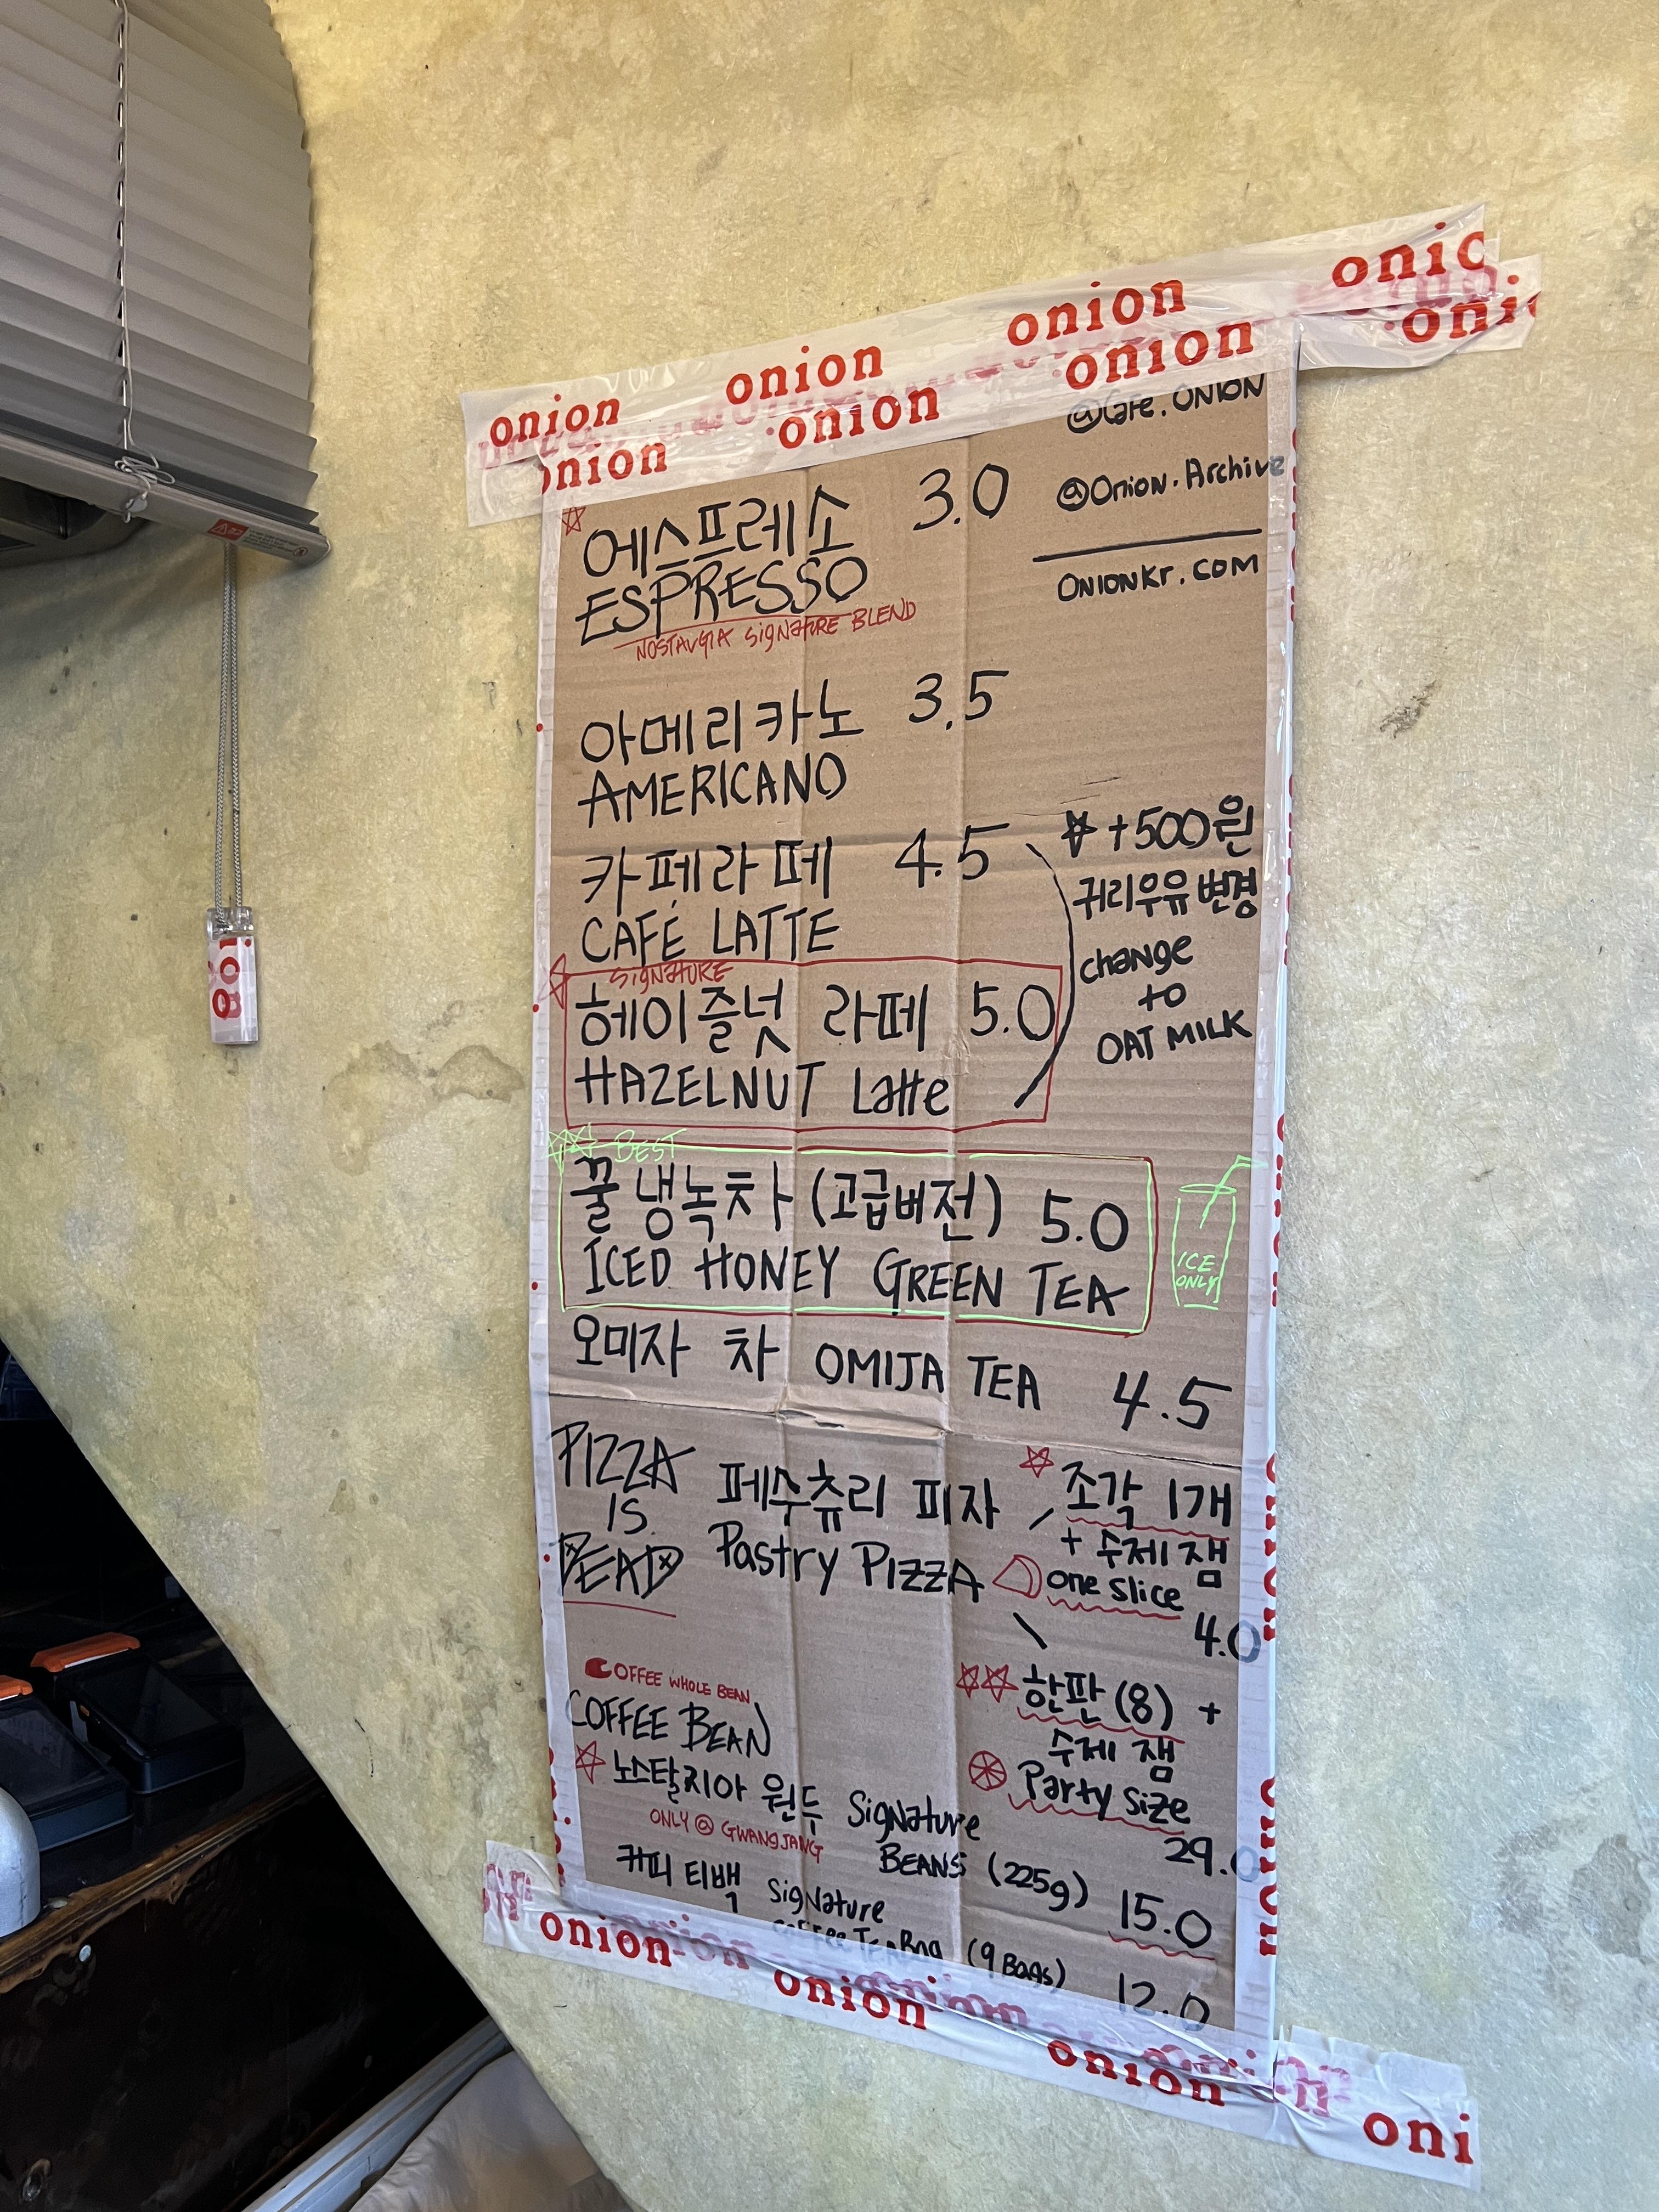 onion onion onion onic
onion onion onion oni
@Cafe.ONION
@Onion.Archive
ONIONKr.COM
에스프레소 3.0
ESPRESSO
NOSTALGIA SIGNATURE BLEND
아메리카노 3.5
AMERICANO
카페라떼 4.5
CAFÉ LATTE
+500원
귀리우유 변경
change
to
OAT MILK
SIGNATURE
헤이즐넛 라떼 5.0
HAZELNUT Latte
BEST
꿀 냉녹차 (고급버전) 5.0
ICED HONEY GREEN TEA
ICE
ONLY
오미자 차 OMIJA TEA 4.5
PIZZA
IS
DEAD
페수츄리 피자
Pastry PIZZA
조각 1개
+ 수제 잼
one slice
4.0
한판 (8) +
수제 잼
Party Size
29.0
COFFEE WHOLE BEAN
COFFEE BEAN
노스탈지아 원두 Signature
BEANS (225g) 15.0
ONLY @ GWANGJANG
커피 티백 Signature
Coffee TEA Bag (9 Bags) 12.0
onion onion onion oni